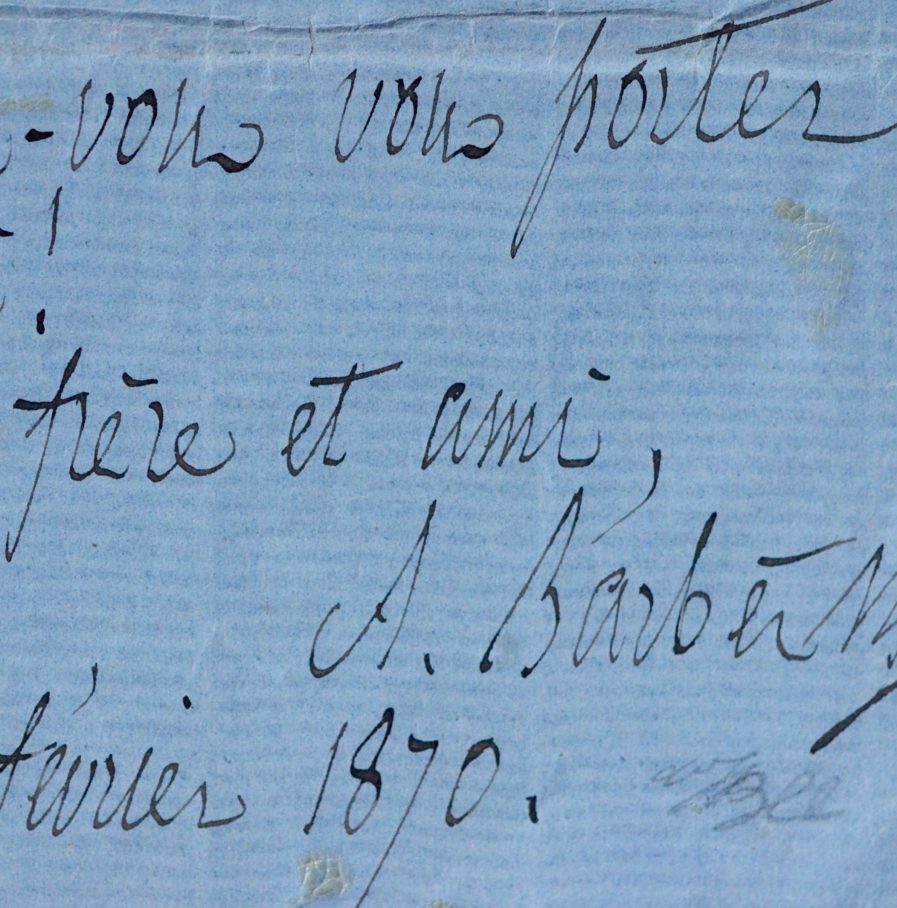 -vous vous porter
frère et ami,
A. Barbès
février 1870.